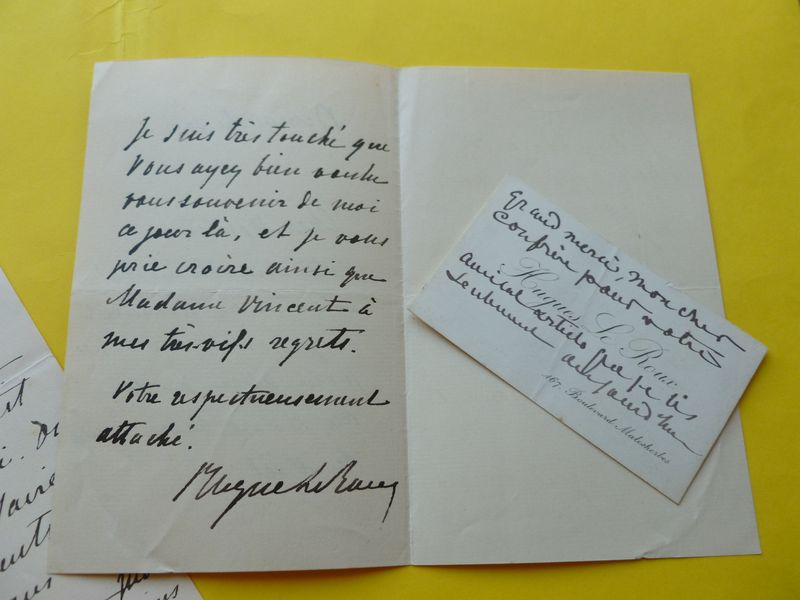 Je suis très touché que
Vous ayez bien voulu
vous souvenir de moi
ce jour là, et je vous
prie croire ainsi que
Madame Vincent à
mes très-vifs regrets.
Votre respectueusement
attaché.
Hugues Le Roux
Grand merci, mon cher
confrère pour votre
amical article que je lis
seulement aujourd'hui
Hugues Le Roux
167 Boulevard Malesherbes